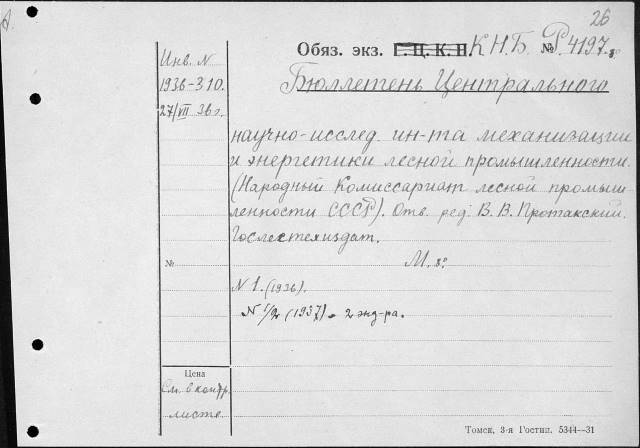 26
Обяз. экз. Г. Ц. К. П. К.Н.Б. № Р4197.8°
Инв. N
1936-310.
27/VII 36 г.
Бюллетень Центрального
научно-исслед. ин-та механизации
и энергетики лесной промышленности.
(Народный Комиссариат лесной промыш-
ленности СССР). Отв. ред. В. В. Протакский.
Гослестехиздат.
№
М. 8°
N 1. (1936).
N 1/2 (1937) - 2 экз-ра.
Цена
См. в контр.
листе
Томск, 3-я Гостип. 5344—31